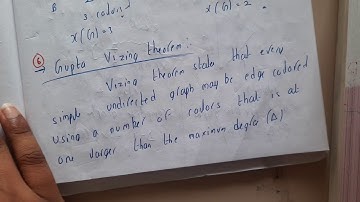 B
3 colors
x(G)=3
x(G)=2
⑥ Gupta Vizing theorem:
Vizing theorem stats that every
simple undirected graph may be edge colored
using a number of colors that is at
one larger than the maximum degree (Δ)